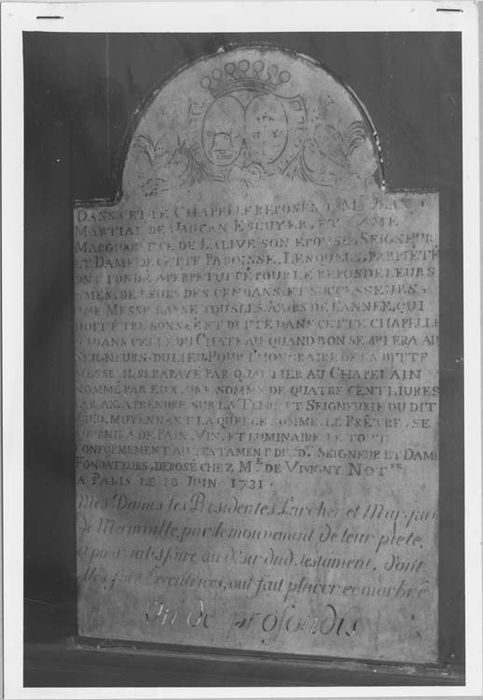 DANS CETTE CHAPELLE REPOSENT MRE JEAN
MARTIAL DE JAUCEN ESCUYER, ET DAME
MARGUERITTE DE LALIVE SON EPOUSE, SEIGNEUR
ET DAME DE CETTE PAROISSE, LESQUELS, PAR PIÉTÉ
ONT FONDÉ A PERPETUITÉ POUR LE REPOS DE LEURS
AMES, DE LEURS DESCENDANS, ET SUCCESSEURS,
UNE MESSE BASSE TOUS LES JOURS DE L'ANNEE, QUI
DOIT ÊTRE SONNÉE ET DITTE DANS CETTE CHAPELLE
OU DANS CELLE DU CHATEAU QUAND BON SEMBLERA AU
SEIGNEURS DU LIEU, POUR L'HONORAIRE DE LA DITTE
MESSE, IL SERA PAYÉ PAR QUARTIER AU CHAPELAIN
NOMMÉ PAR EUX, UNE SOMME DE QUATRE CENT LIVRES
PAR AN, A PRENDRE SUR LA TERRE ET SEIGNEURIE DU DIT
LIEU, MOYENNANT LAQUELLE SOMME, LE PRÊTRE, SE
FOURNIRA DE PAIN, VIN, ET LUMINAIRE, LE TOUT
CONFORMEMENT AU TESTAMENT DES DS. SEIGNEUR ET DAME
FONDATEURS, DEPOSÉ CHEZ ME. DE VISIGNY NOTRE.
A PARIS LE 18 JUIN 1731.
Mes Dames les Presidentes Larcher et
de Mermville, par le mouvement de leur pieté
et pour satisfaire au desir dud. testament, dont
Elles sont Executrices, ont fait placer ce marbre
Un de profondis